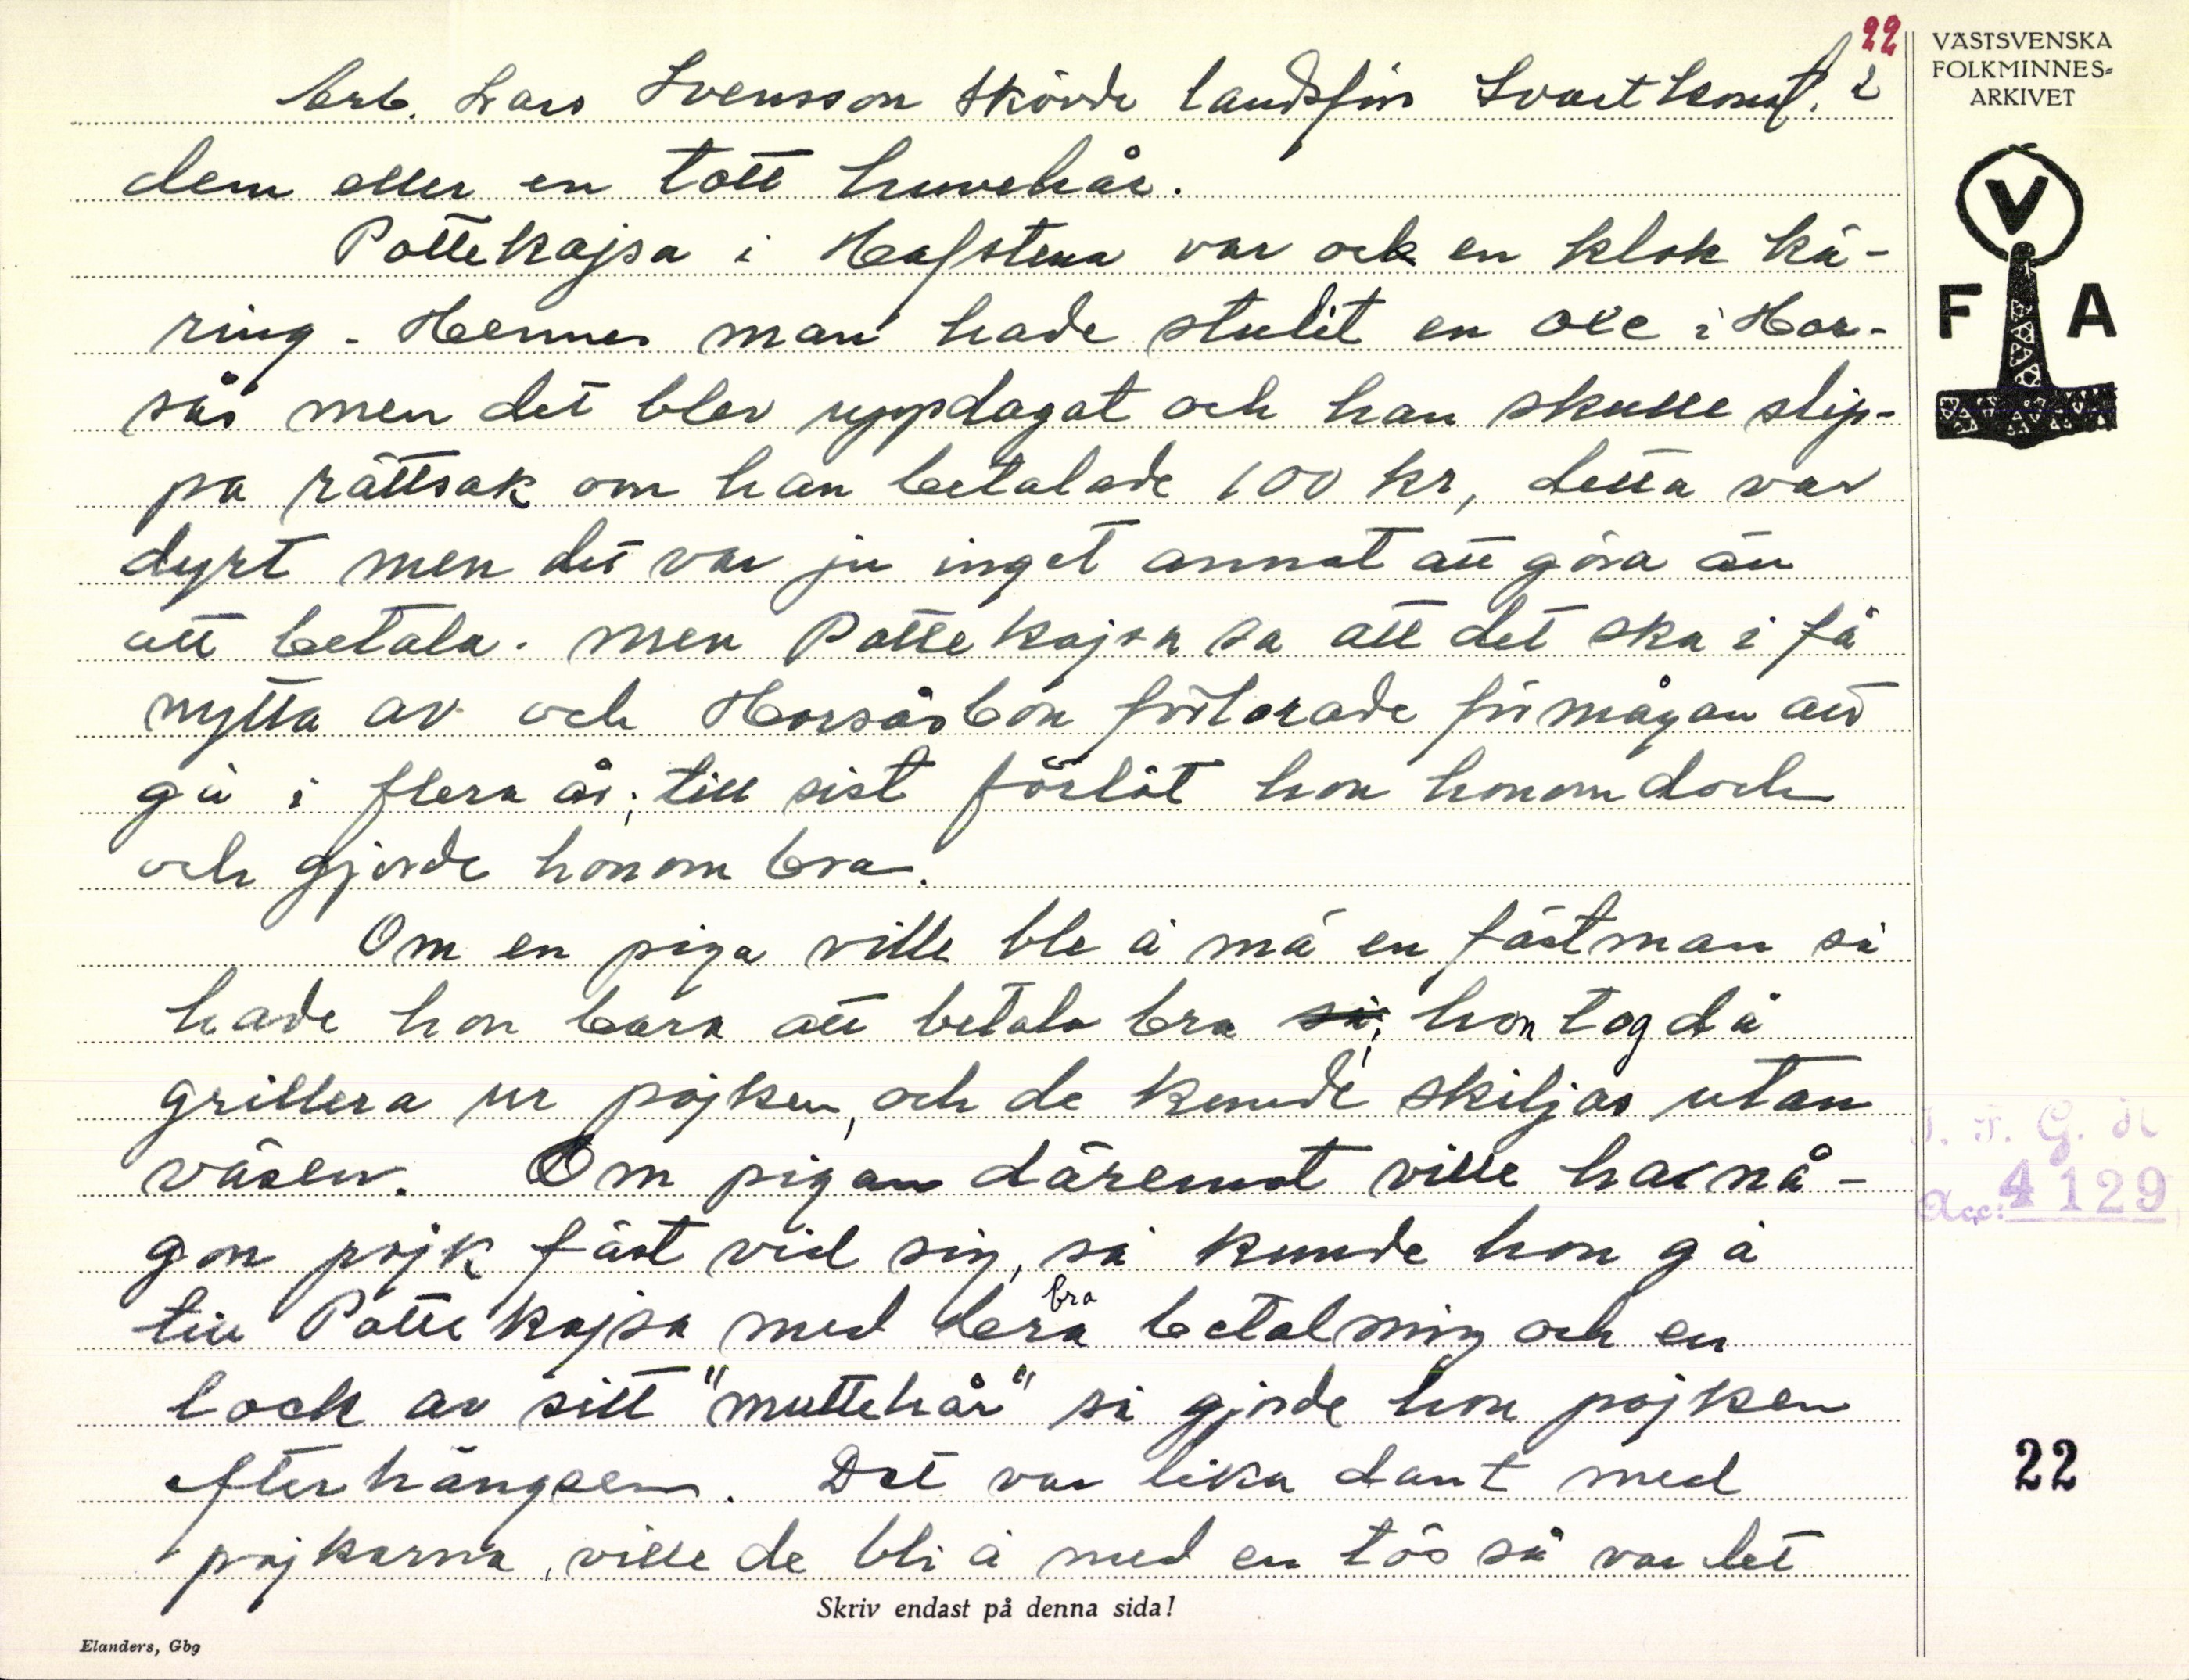 22
Berb. Lars Svensson Skövde landsförs Svartkonst. 2
dem eller en tott huvehår.
Pottekajsa i Hafstena var ock en klok kä-
ring. Hennes man hade stulit en oxe i Hor-
sås men det blev uppdagat och han skulle slip-
pa rättsak om han betalade 100 kr, detta var
dyrt men det var ju inget annat att göra än
att betala. Men Pottekajsa sa att det ska i få
nytta av och Horsåsbon förlorade förmågan att
gå i flera år; till sist förlät hon honom doch
och gjorde honom bra.
Om en piga ville ble å mä en fästman så
hade hon bara att betala bra så; hon tog då
grillera ur pojken, och de kunde skiljas utan
väsen. Om pigan däremot ville ha nå-
gon pojk fäst vid sig, så kunde hon gå
till Pottekajsa med bra bra betalning och en
lock av sitt "muttehår" så gjorde hon pojken
efterhängsen. Det var lika dant med
pojkarna, ville de bli å med en tös så var det
Skriv endast på denna sida!
Elanders, Gbg
VÄSTSVENSKA
FOLKMINNES-
ARKIVET
V
F A
I. F. G. H
Acc: 4129
22